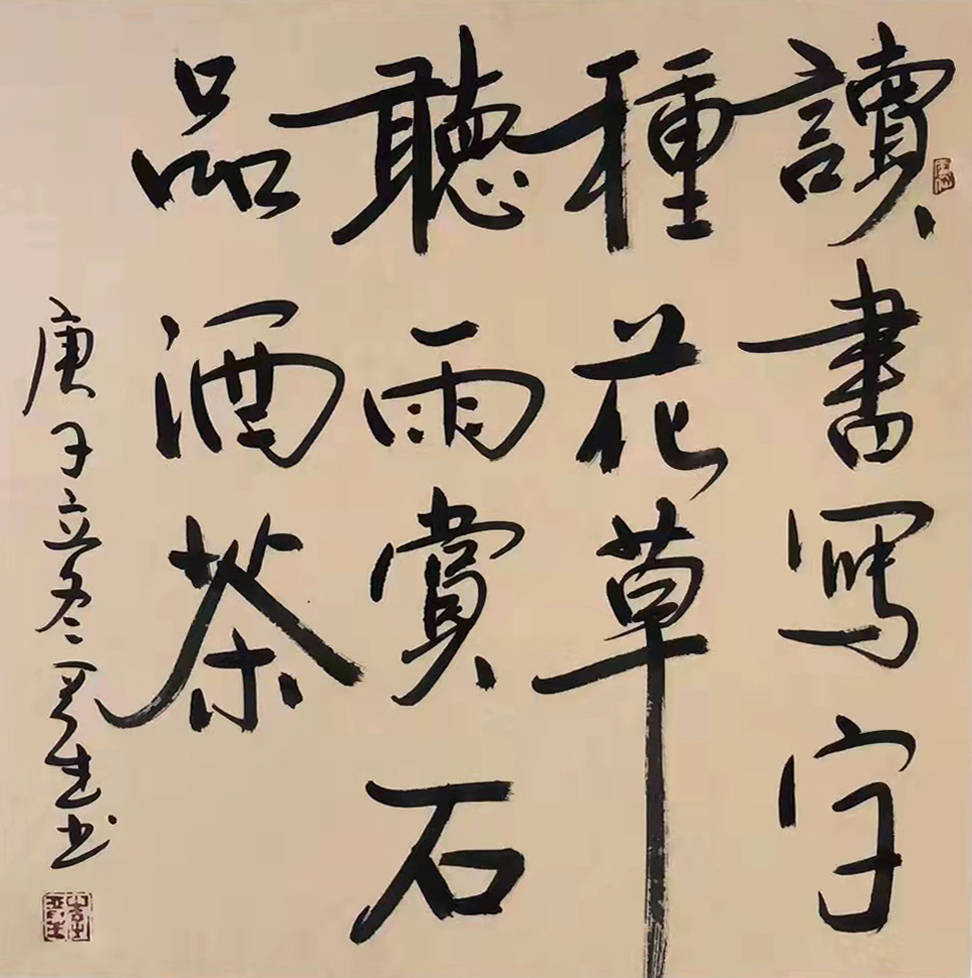 讀書寫字
種花草
聽雨賞石
品酒茶
庚子立冬
生书